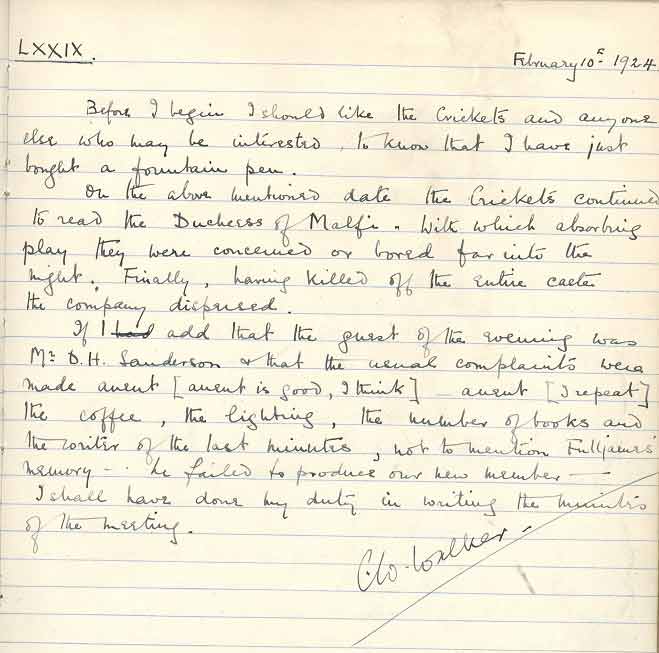 LXXIX.
February 10th 1924
Before I begin I should like the Crickets and anyone
else who may be interested, to know that I have just
bought a fountain pen.
On the above mentioned date the Crickets continued
to read the Duchess of Malfi. With which absorbing
play they were concerned or bored far into the
night. Finally, having killed off the entire caste
the company dispersed.
If I had add that the guest of the evening was
Mr D.H. Sanderson & that the usual complaints were
made anent [anent is good, I think] – anent [I repeat]
the coffee, the lighting, the number of books and
the writer of the last minutes, not to mention Fulljames'
memory – he failed to produce our new member –
I shall have done my duty in writing the minutes
of the meeting.
Walker